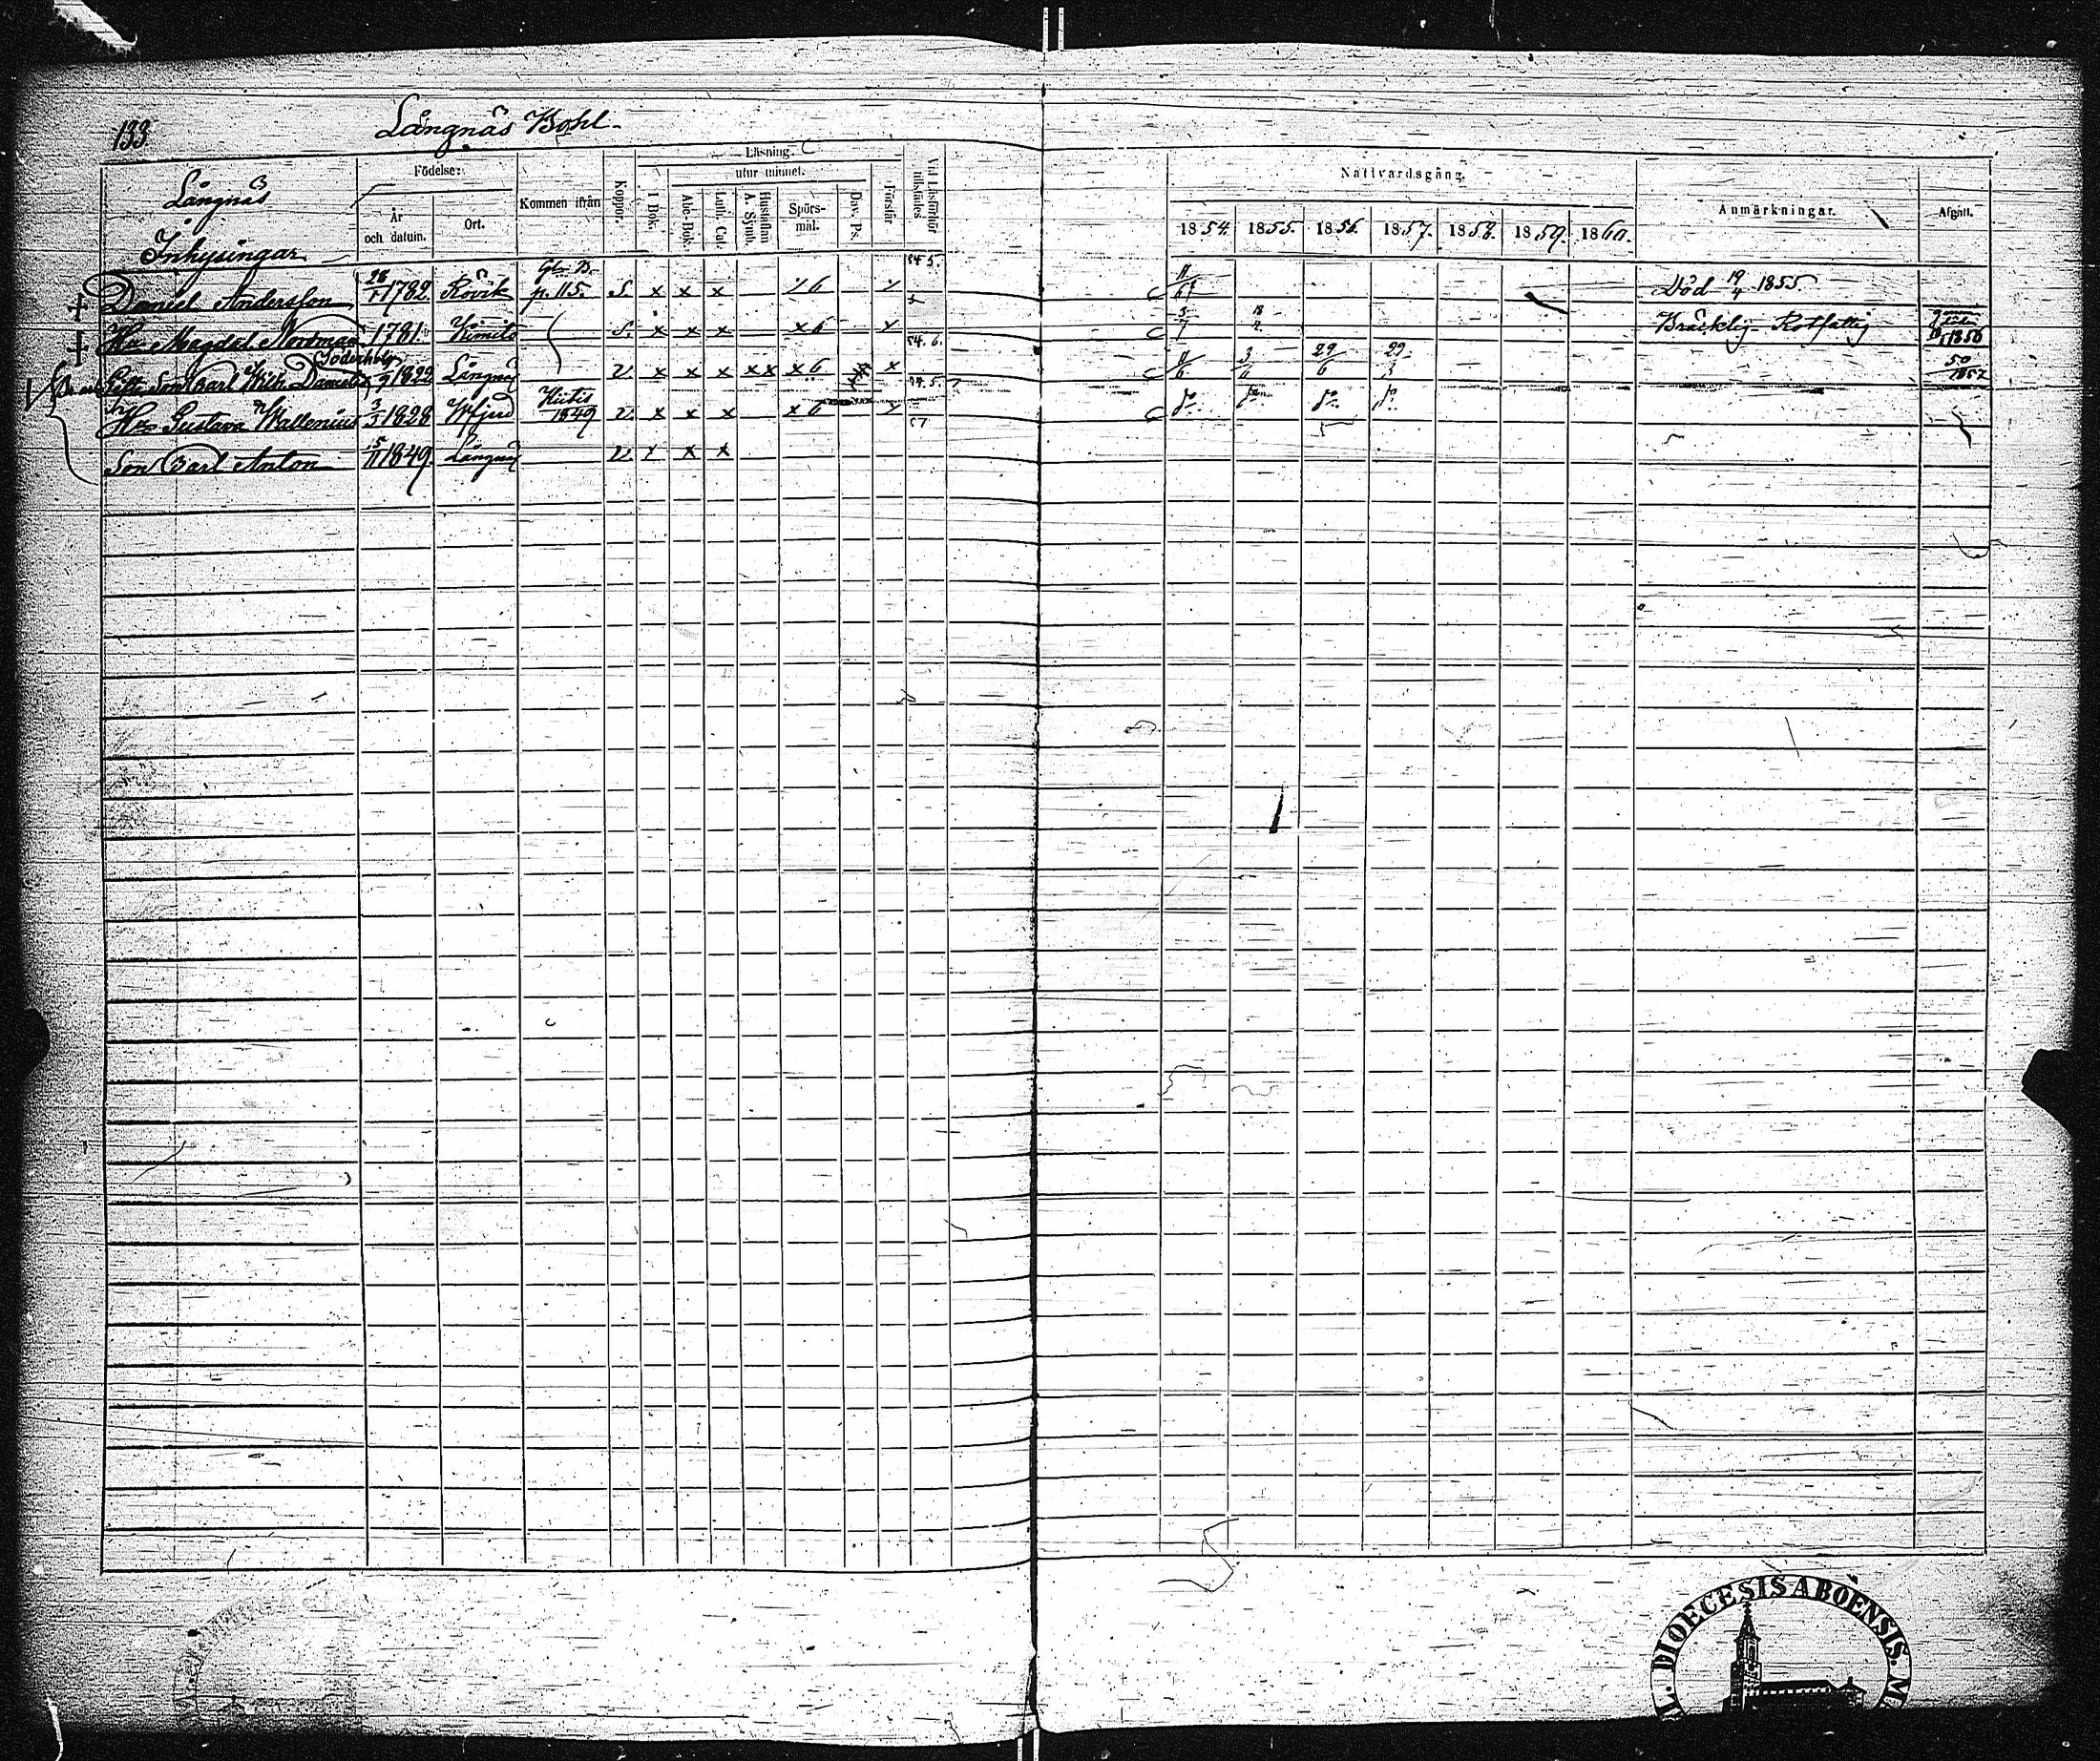 133.
Långnäs Bohl
Födelse:
Läsning.
utur minnet.
Nattvardsgång.
Långnäs
Inhysingar
År och datum.
Ort.
Kommen ifrån
Koppor.
I Bok.
Abc-Bok.
Luth. Cat.
Hustaflan A. Symb.
Spörs-mål.
Dav. Ps.
Förstår
Vid Läsförhör tillstädes
1854. 1855. 1856. 1857. 1858. 1859. 1860.
Anmärkningar.
Afgått.
Daniel Andersson 28/1 1782 Rövik Gl. B. p. 115. S. x x x x 6 x 54 5. 11/6 Död 19/4 1855
Hu Magdal Nordman 1781 Kimito S. x x x x 6 x 54. 6. 3/7 Bräcklig Rotfattig 1856
Gifte Son Carl Wilh. Daniels Söderholm 1822 Långnäs V. x x x x x x 6 x 54. 5. 11/6 3/6 29/6 29/3 50/1857
Hu Gustava Wallenius 3/3 1828 Hitis 1849 V. x x x x 6 x 57 do do do do
Son Carl Anton 15/11 1849. Långnäs V. x x x
DIOECESIS ABOENSIS. M